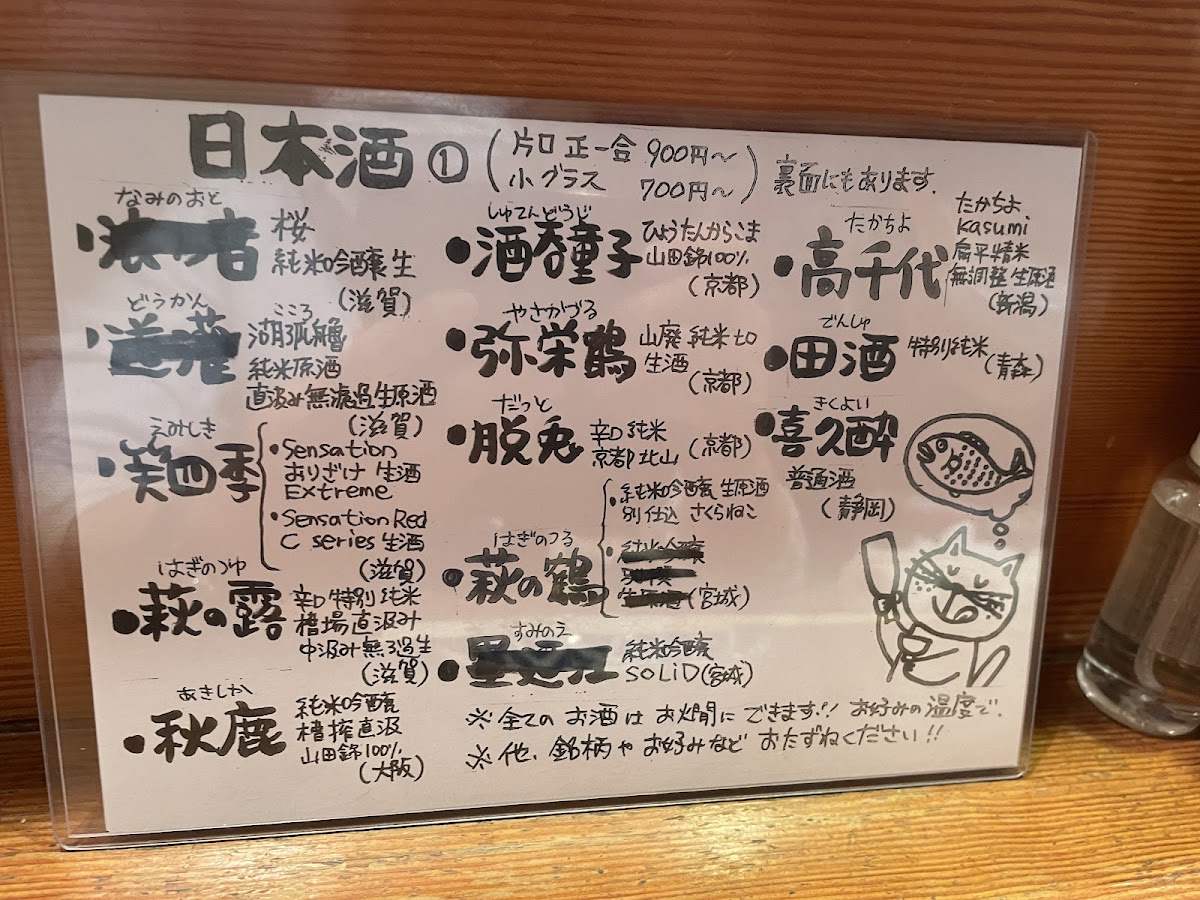 日本酒 ① (片口 正一合 900円〜
小グラス 700円〜)
裏面にもあります.
なみのおと
・浪の音
桜
純米吟醸生
(滋賀)
どうかん
・道灌
こころ
湖弧艪
純米原酒
直汲み無濾過生原酒
(滋賀)
えみしき
・笑四季
・Sensation
おりざけ 生酒
Extreme
・Sensation Red
C series 生酒
(滋賀)
はぎのつゆ
・萩の露
辛口特別純米
槽場直汲み
中汲み無ろ過生
(滋賀)
あきしか
・秋鹿
純米吟醸
槽搾直汲
山田錦100%
(大阪)
しゅてんどうじ
・酒呑童子
ひょうたんからこま
山田錦100%
(京都)
やさかづる
・弥栄鶴
山廃純米70
生酒
(京都)
だっと
・脱兎
辛口純米
京都北山
(京都)
はぎのつる
・萩の鶴
・純米吟醸 生原酒
別仕込 さくらねこ
・純米吟醸
生原酒(宮城)
すみのえ
・墨廼江
純米吟醸
SOLiD(宮城)
たかちよ
・高千代
たかちよ
Kasumi
扁平精米
無調整生原酒
(新潟)
でんしゅ
・田酒
特別純米
(青森)
きくよい
・喜久酔
普通酒
(静岡)
※全てのお酒はお燗にできます!! お好みの温度で.
※他、銘柄やお好みなど おたずねください!!